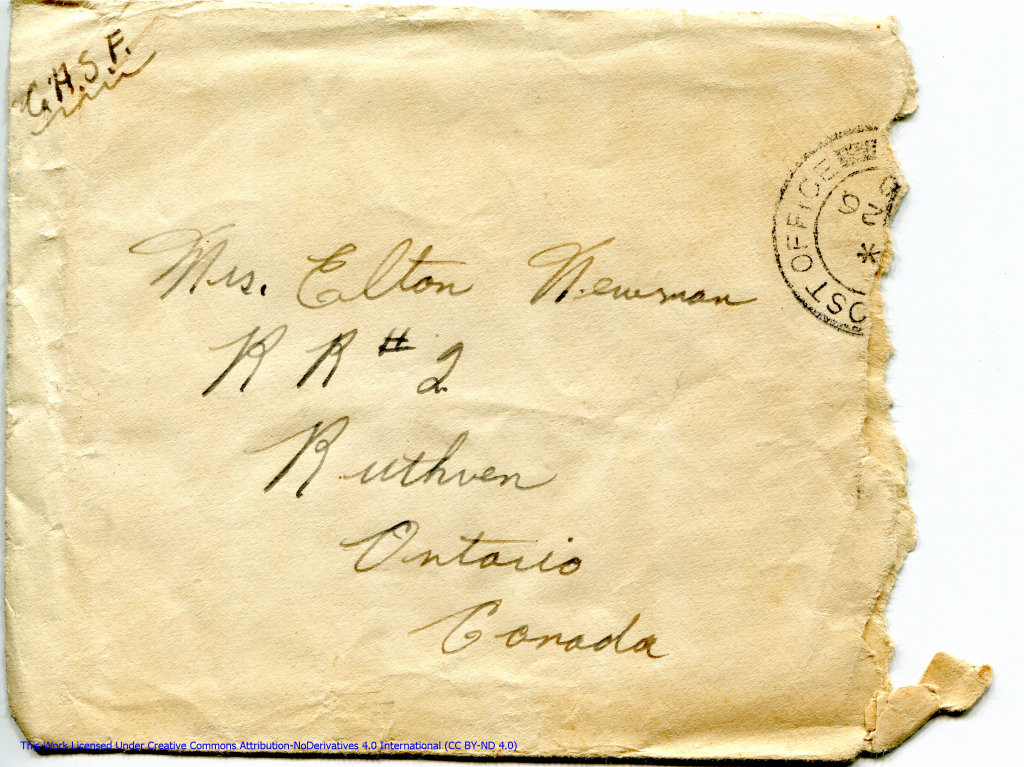 C.A.S.F.
Mrs. Elton Newman
R R # 2
Ruthven
Ontario
Canada
OST OFFICE
26
This Work Licensed Under Creative Commons Attribution-NoDerivatives 4.0 International (CC BY-ND 4.0)